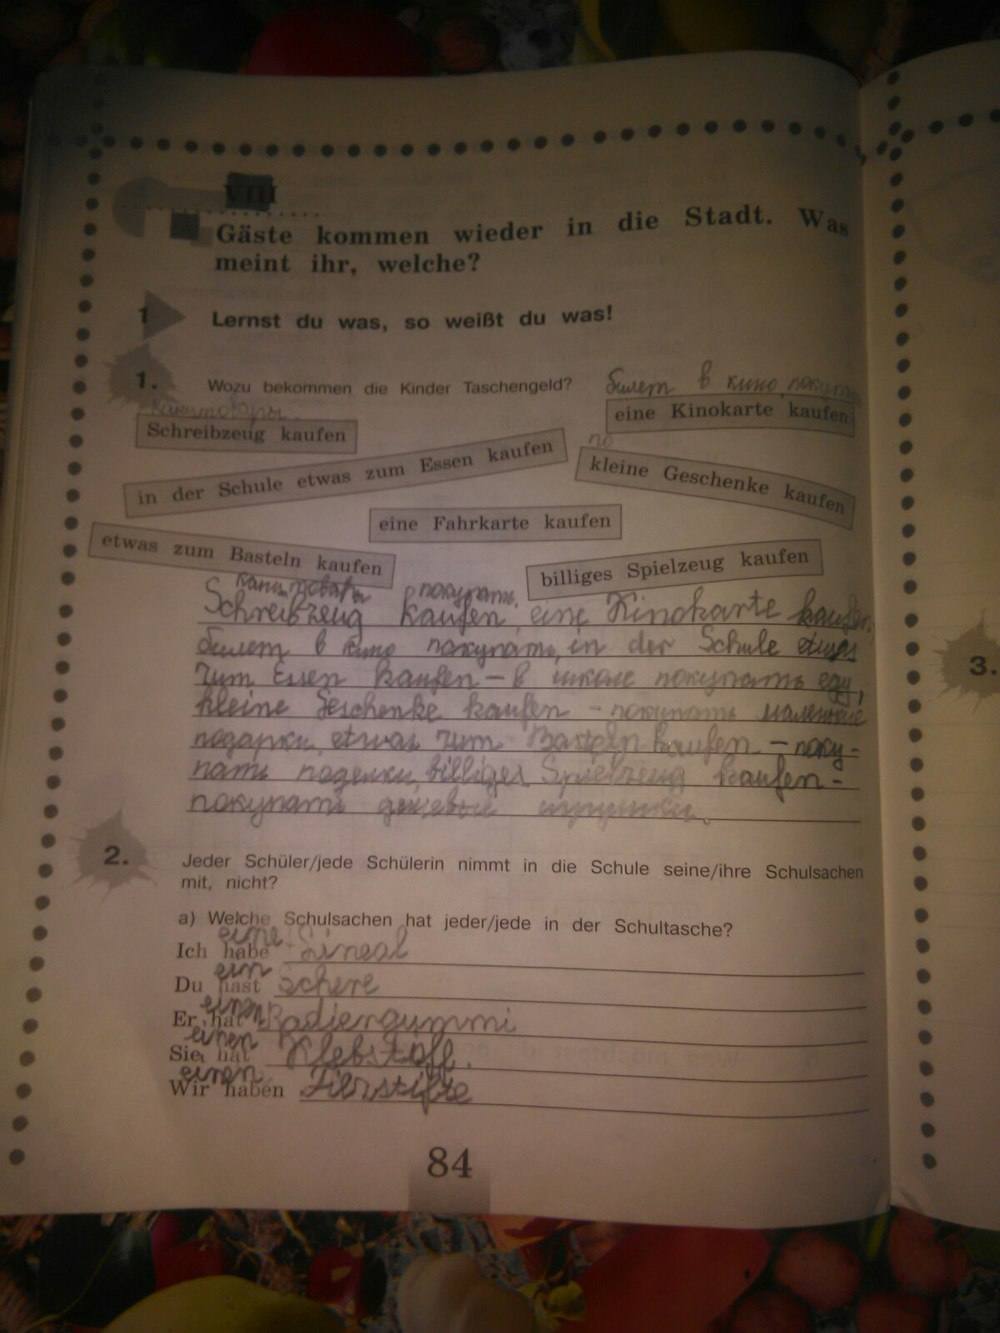 VIII
Gäste kommen wieder in die Stadt. Was
meint ihr, welche?
1 Lernst du was, so weißt du was!
1. Wozu bekommen die Kinder Taschengeld? билет в кино покупать
канцтовары
Schreibzeug kaufen
eine Kinokarte kaufen
по
in der Schule etwas zum Essen kaufen
kleine Geschenke kaufen
eine Fahrkarte kaufen
etwas zum Basteln kaufen
billiges Spielzeug kaufen
покупать
Schreibzeug kaufen, eine Kinokarte kaufen
билет в кино покупать, in der Schule etwas
zum Essen kaufen – в школе покупать еду,
kleine Geschenke kaufen – покупать маленькие
подарки, etwas zum Basteln kaufen – поку-
пать поделки, billiges Spielzeug kaufen –
покупать дешевые игрушки.
2. Jeder Schüler/jede Schülerin nimmt in die Schule seine/ihre Schulsachen
mit, nicht?
a) Welche Schulsachen hat jeder/jede in der Schultasche?
eine
Ich habe Lineal
ein
Du hast Schere
einen
Er hat Radiergummi
einen
Sie hat Klebstoff.
einen
Wir haben
84
3.